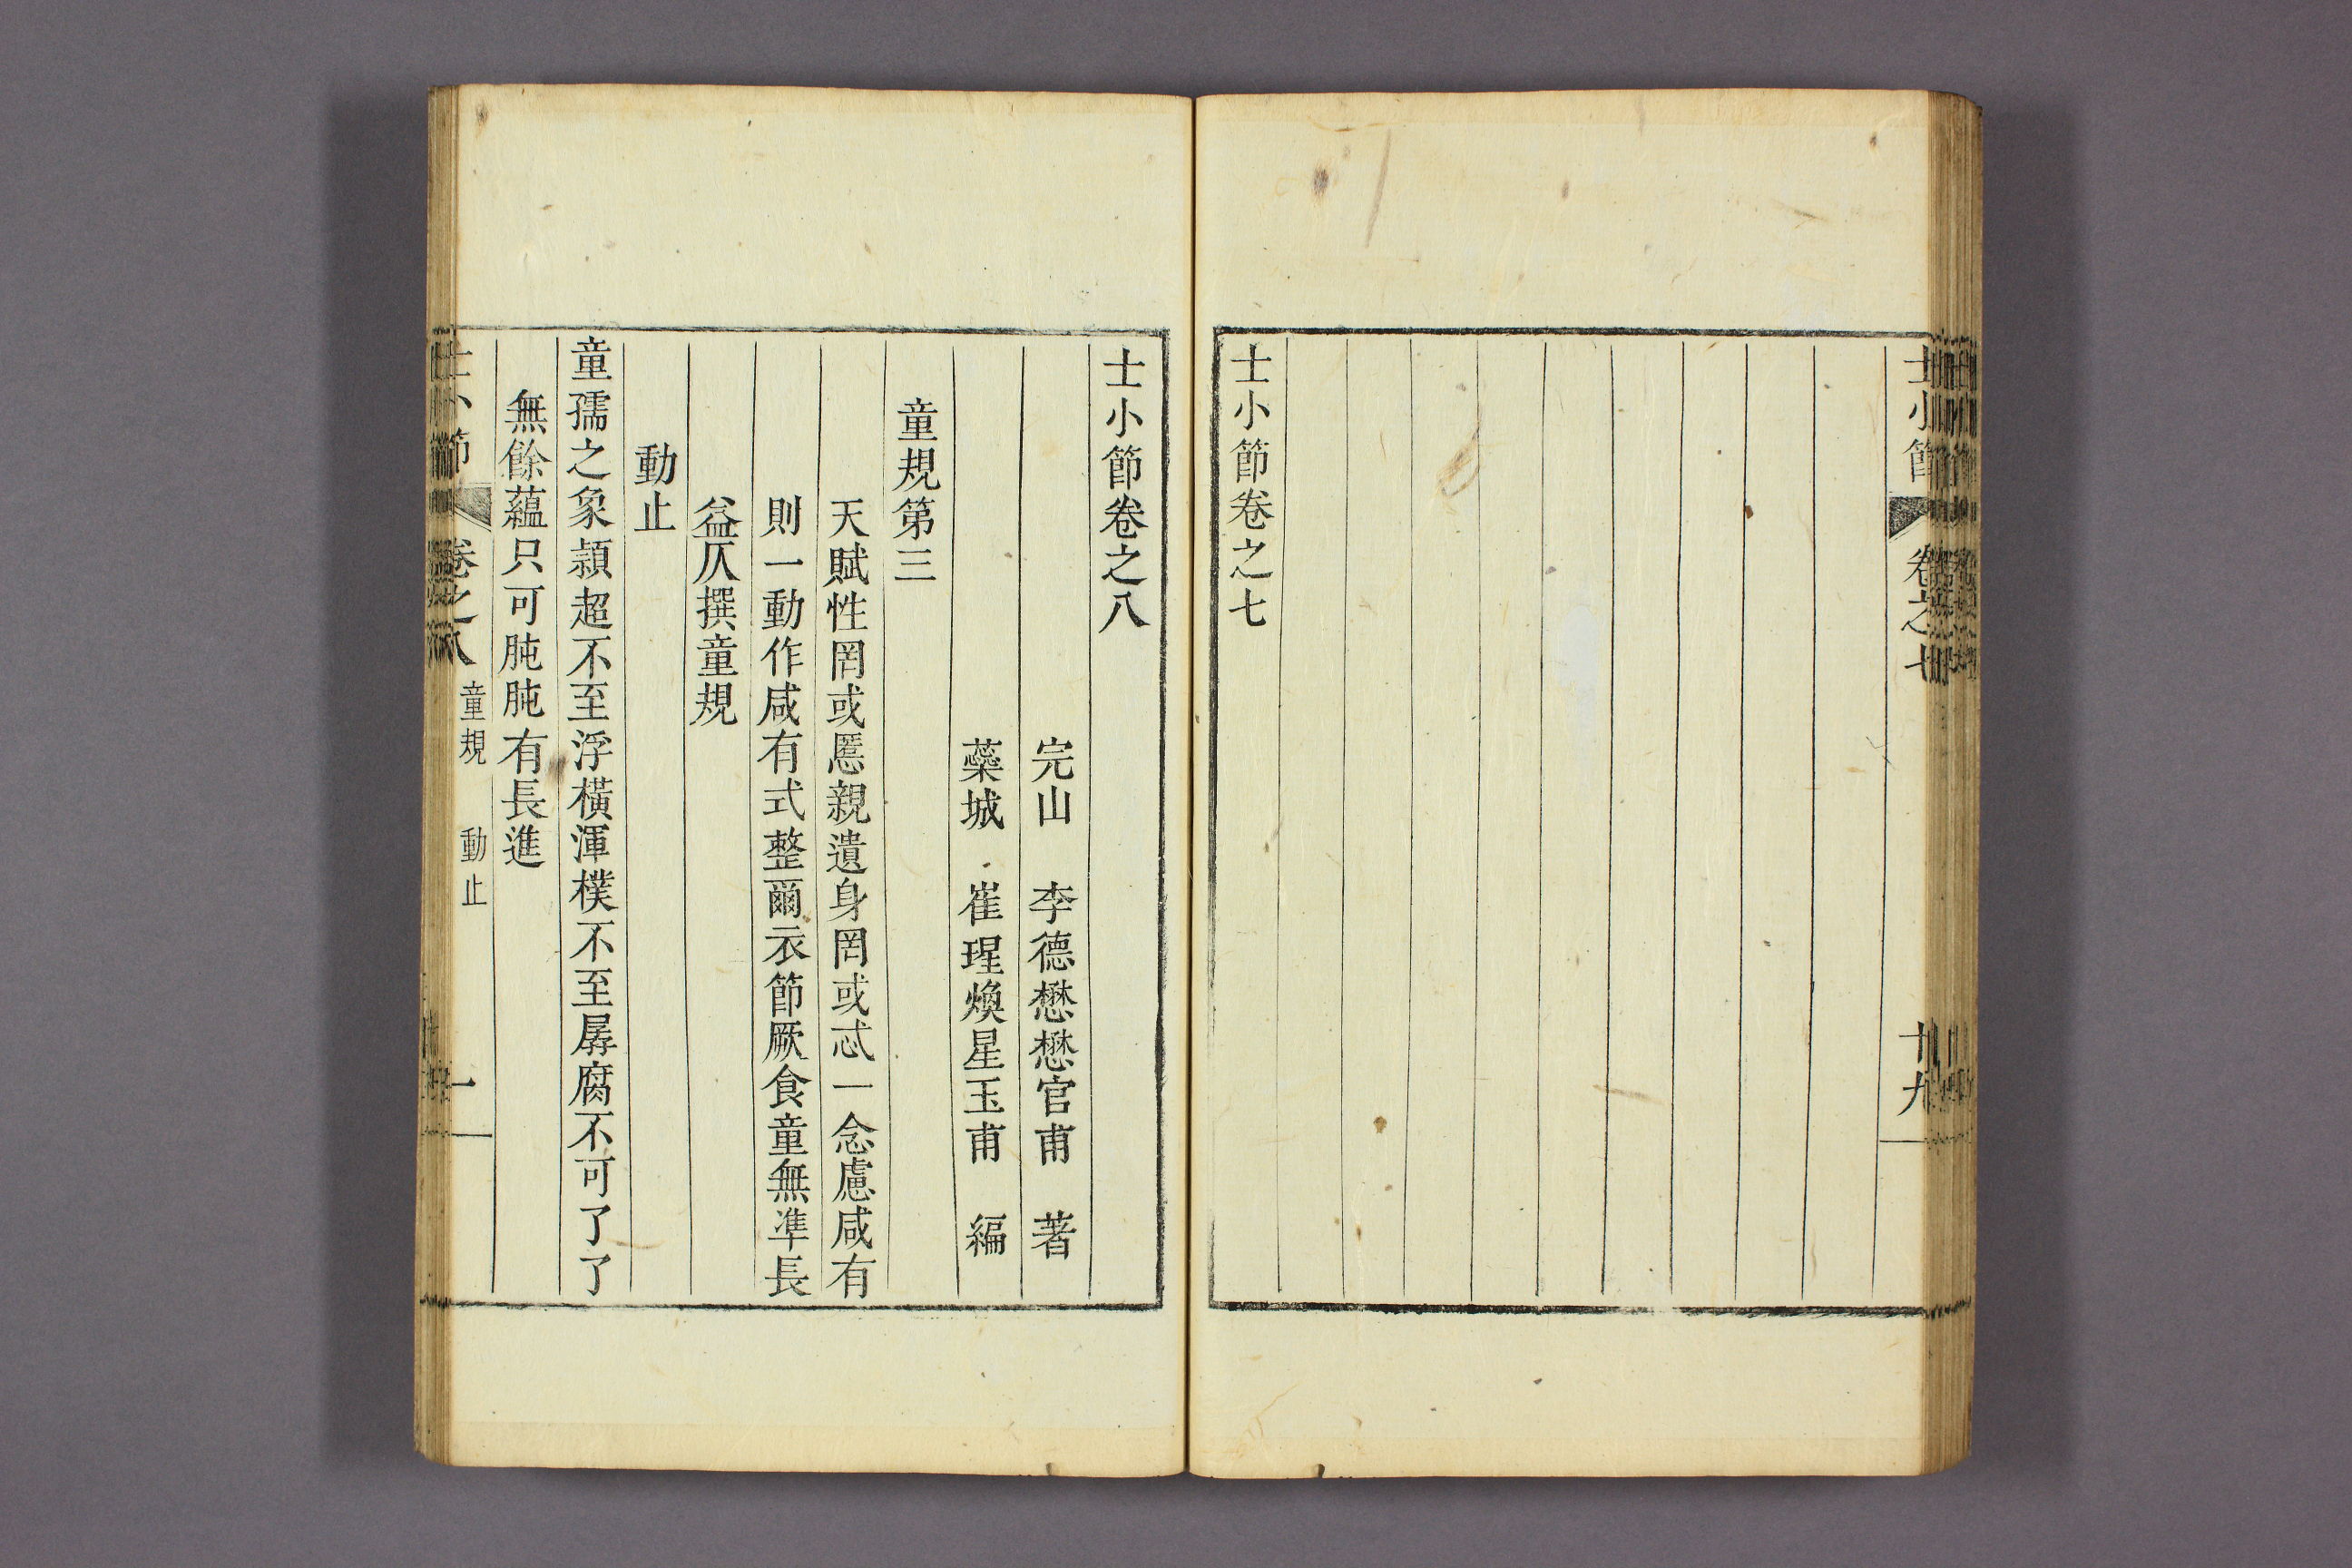 士小節 卷之七 十九
士小節卷之七
士小節卷之八
完山 李德懋懋官甫 著
蘂城 崔瑆煥星玉甫 編
童規第三
天賦性罔或慝親遺身罔或忒一念慮咸有
則一動作咸有式整爾衣節厥食童無準長
益仄撰童規
動止
童孺之象穎超不至浮橫渾樸不至孱腐不可了了
無餘蘊只可肫肫有長進
士小節 卷之八 童規 動止 一